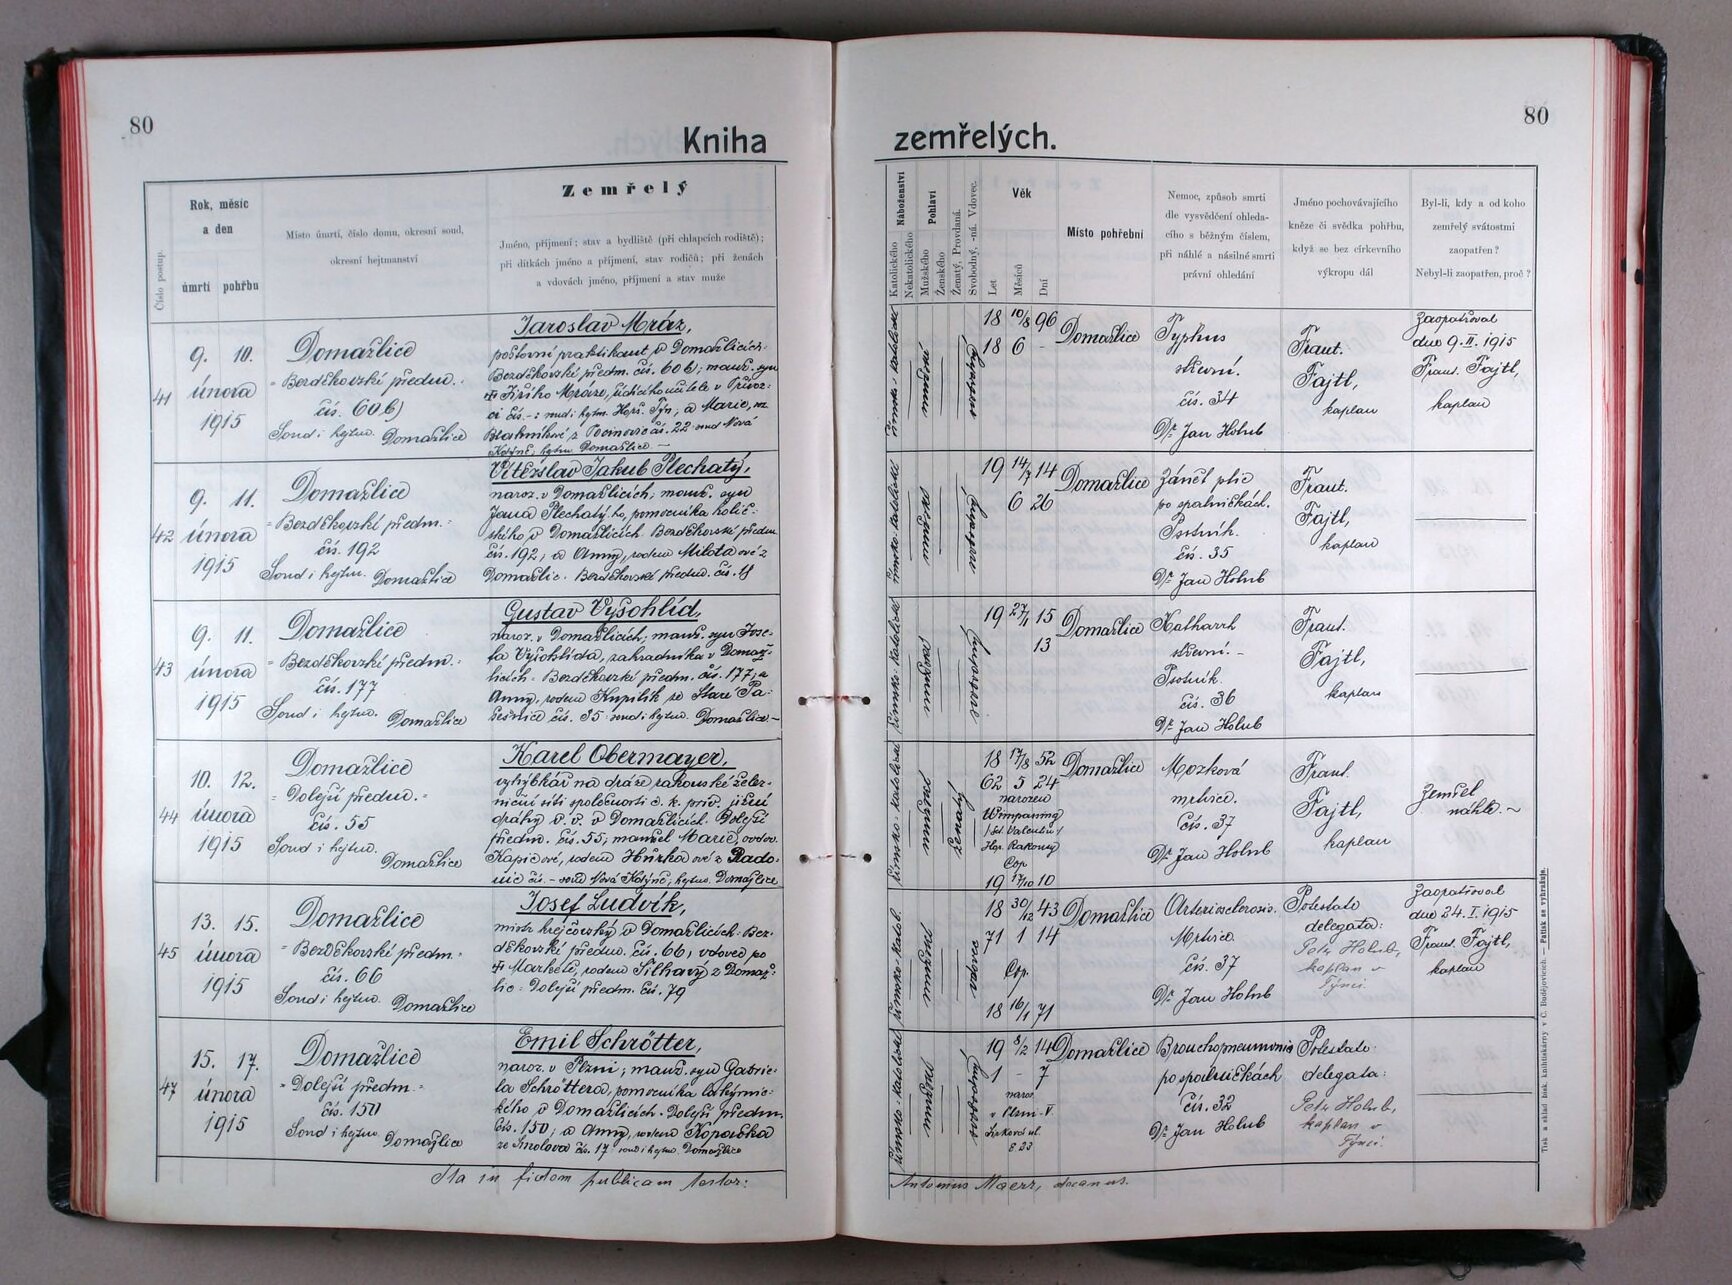 80
Kniha
zemřelých.
80
Číslo postup.
Rok, měsíc
a den
úmrtí pohřbu
Místo úmrtí, číslo domu, okresní soud,
okresní hejtmanství
Zemřelý
Jméno, příjmení; stav a bydliště (při chlapcích rodiště);
při dítkách jméno a příjmení, stav rodičů; při ženách
a vdovách jméno, příjmení a stav muže
Náboženství
Katolického
Nekatolického
Pohlaví
Mužského
Ženského
Ženatý, Provdaná.
Svobodný, -ná. Vdovec.
Věk
Let
Měsíců
Dní
Místo pohřební
Nemoc, způsob smrti
dle vysvědčení ohleda-
cího s běžným číslem,
při náhlé a násilné smrti
právní ohledání
Jméno pochovávajícího
kněze či svědka pohřbu,
když se bez církevního
výkropu dál
Byl-li, kdy a od koho
zemřelý svátostmi
zaopatřen?
Nebyl-li zaopatřen, proč?
41
9. 10.
února
1915
Domažlice
Bezděkovské předm.
čís. 606)
Soud i hejtm. Domažlice
Jaroslav Mráz,
poštovní praktikant v Domažlicích-
Bezděkovské předm. čís. 606; manž. syn
čís. 22 soud Nová
Kdýně; hejtm. Domažlice
římsko-katolické
mužské
svobodný
18 10/8 96
18 6 -
Domažlice
Typhus
střevní.
čís. 34
Dr Jan Holub
Frant.
Fajtl,
kaplan
Zaopatřoval
dne 9. II. 1915
Frant. Fajtl,
kaplan
42
9. 11.
února
1915
Domažlice
Bezděkovské předm.
čís. 192
Soud i hejtm. Domažlice
Vítězslav Jakub Plechatý,
naroz. v Domažlicích; manž. syn
Jana Plechatého, pomocníka holič-
ského v Domažlicích Bezděkovské předm.
čís. 192; a Anny, rodem Milotaové z
Domažlic. Bezděkovské předm. čís.
římsko-katolické
mužské
svobodný
19 14/7 14
6 26
Domažlice
Zánět plic
po spalničkách.
čís. 35
Dr Jan Holub
Frant.
Fajtl,
kaplan
43
9. 11.
února
1915
Domažlice
Bezděkovské předm.
čís. 177
Soud i hejtm. Domažlice
Gustav Vyšohlíd,
naroz. v Domažlicích; manž. syn Jose-
fa Vyšohlída, zahradníka v Domaž-
licích - Bezděkovské předm. čís. 177; a
Anny, rodem Kupilík ze Staré Pa-
sešnice čís. 35 soud i hejtm. Domažlice -
římsko-katolické
mužské
svobodný
19 27/1 15
13
Domažlice
Katharrh
střevní. -
čís. 36
Dr Jan Holub
Frant.
Fajtl,
kaplan
44
10. 12.
února
1915
Domažlice
Dolejší předm.
čís. 55
Soud i hejtm.
Domažlice
Karel Obermayer,
výhybkář na dráze rakouské želez-
niční síti společnosti c. k. priv. jižní
dráhy v. v. v Domažlicích Dolejší
předm. čís. 55; manžel Marie, vdov.
Kapicové, rodem Hruškaové z Rado-
nic čís. - soud Nová Kdýně; hejtm. Domažlice
římsko-katolické
mužské
ženatý
18 17/8 52
62 5 24
narozen
Wimpassing
Cop.
19 17/10 10
Domažlice
Mozková
mrtvice.
čís. 37
Dr Jan Holub
Frant.
Fajtl,
kaplan
Zemřel
náhle. ~
45
13. 15.
února
1915
Domažlice
Bezděkovské předm.
čís. 66
Soud i hejtm. Domažlice
Josef Ludvík,
mistr krejčovský v Domažlicích - Bez-
děkovské předm. čís. 66, vdovec po
✝ Markétě, rodem Šilhavý z Domaž-
lic - Dolejší předm. čís. 79
římsko-katol.
mužské
vdovec
18 30/12 43
71 1 14
Cop.
18 16/1 71
Domažlice
Arteriosclerosis.
Mrtvice.
čís. 37
Dr Jan Holub
Potestate
delegata:
Petr Holub,
kaplan v
Týnci.
Zaopatřoval
dne 24. I. 1915
Frant. Fajtl,
kaplan
47
15. 17.
února
1915
Domažlice
Dolejší předm.
čís. 150
Soud i hejtm. Domažlice
Emil Schrötter,
naroz. v Plzni; manž. syn Gabrie-
la Schröttera, pomocníka
v Domažlicích - Dolejší předm.
čís. 150; a Anny, rodem
ze Smolova čís. 17 soud i hejtm. Domažlice
římsko-katolické
mužské
svobodný
19 8/2 14
1 - 7
naroz.
v Plzni - V
Domažlice
Bronchopneumonis
po spalničkách
čís. 32
Dr Jan Holub
Potestate
delegata:
Petr Holub,
kaplan v
Týnci.
Ita in fidem publicam testor:
Antonius Maerz, decanus.
Tisk a sklad bisk. knihtiskárny v Č. Budějovicích. — Patisk se vyhražuje.